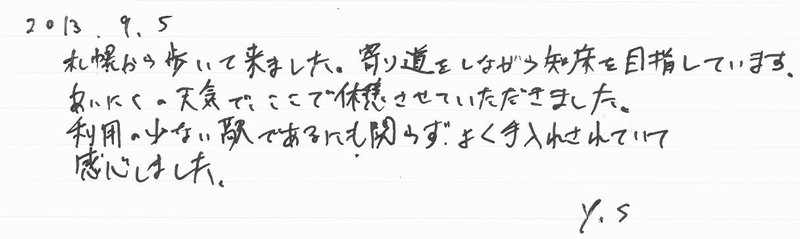 2013.9.5
札幌から歩いて来ました。寄り道をしながら知床を目指しています。
あいにくの天気で、ここで休憩させていただきました。
利用の少ない駅であるにも関わらず、よく手入れされていて
感心しました。
Y.S